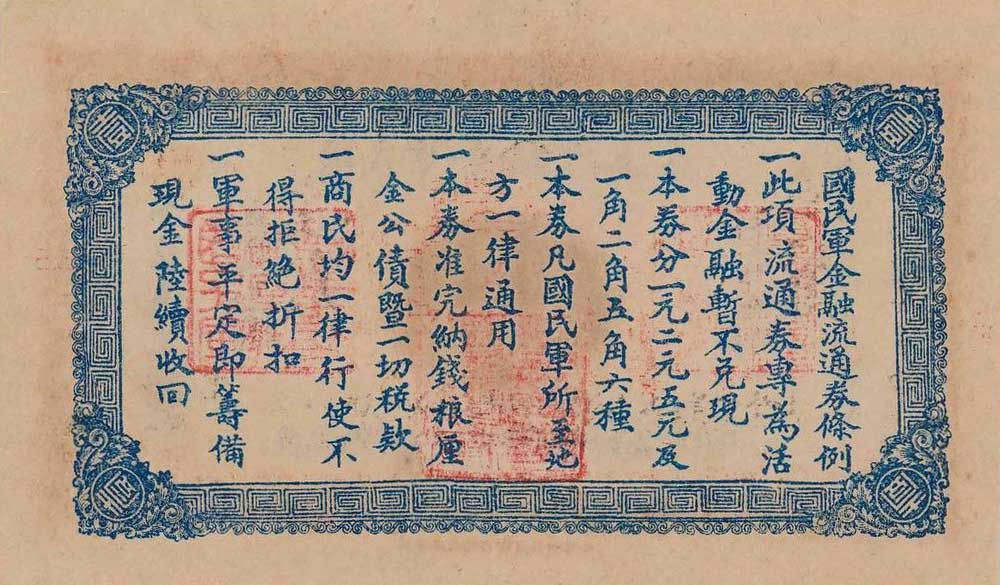 國民軍金融流通券條例
一此項流通券專為活
動金融暫不兌現
一本券分一元二元五元及
一角二角五角六種
一本券凡國民軍所至地
方一律通用
一本券准完納錢粮厘
金公債暨一切税欵
一商民均一律行使不
得拒絶折扣
一軍事平定即籌備
現金陸續收回